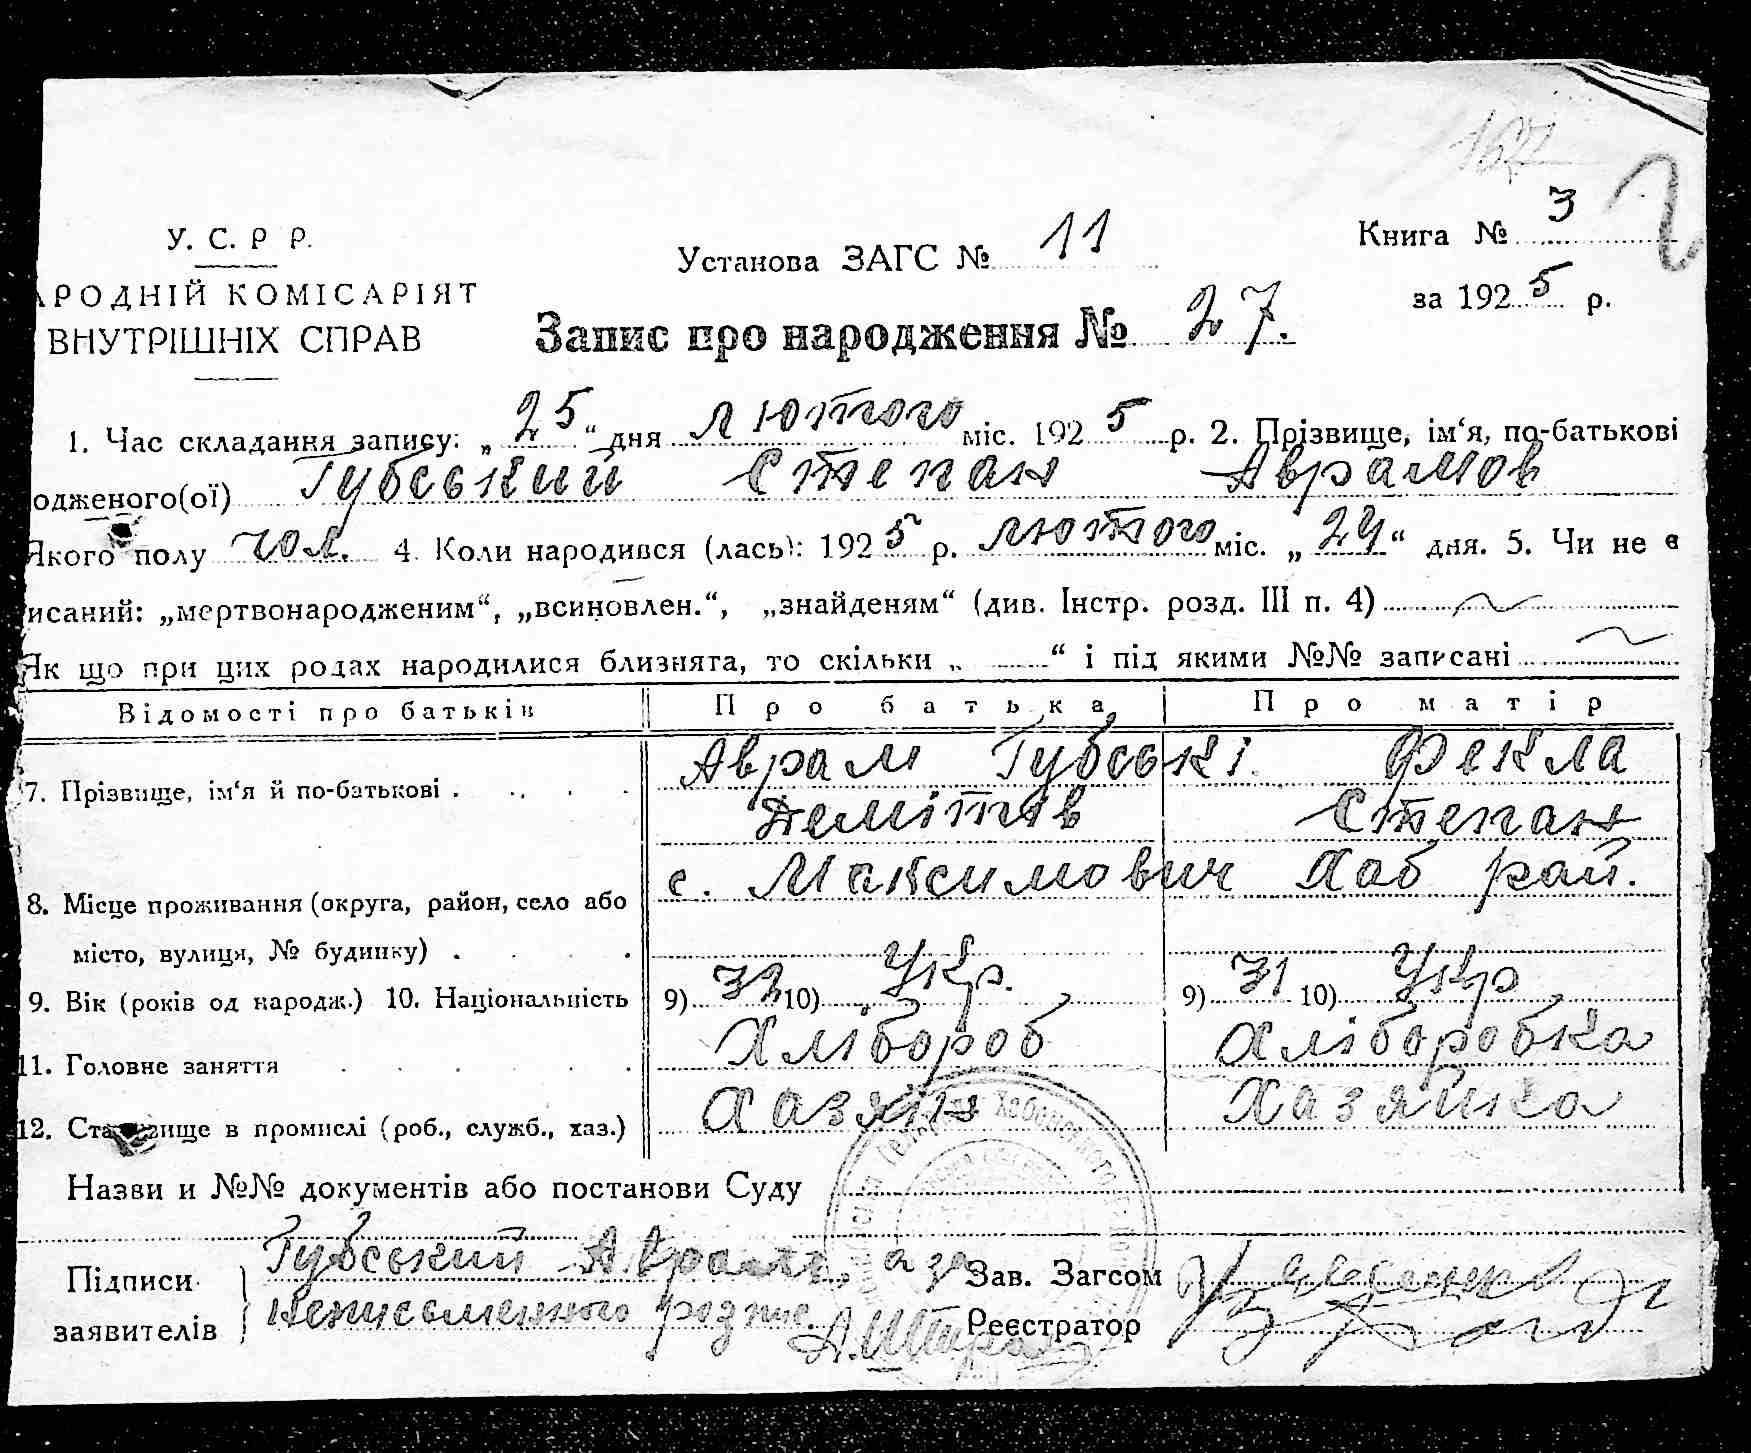 167
2
Книга № 3
У. С. Р Р.
Установа ЗАГС № 11
за 1925 р.
АРОДНІЙ КОМІСАРІЯТ
ВНУТРІШНІХ СПРАВ
Запис про народження № 27.
1. Час складання запису: „25“ дня лютого міс. 1925 р. 2. Прізвище, ім‘я, по-батькові
одженого(ої) Губський Степан Аврамов
Якого полу чол. 4. Коли народився (лась): 1925 р. лютого міс. „24“ дня. 5. Чи не є
исаний: „мертвонародженим“, „всиновлен.“, „знайденям“ (див. Інстр. розд. III п. 4)
Як що при цих родах народилися близнята, то скільки „ “ і під якими №№ записані
Відомості про батьків Про батька Про матір
7. Прізвище, ім‘я й по-батькові . Аврам Губські Фекла
Демітів Степан
8. Місце проживання (округа, район, село або с. Максимович Хаб рай.
місто, вулиця, № будинку) .
9. Вік (років од народж.) 10. Національність 9) 32 10) Укр. 9) 31 10) Укр
11. Головне заняття Хлібороб Хліборобка
12. Становище в промислі (роб., служб., хаз.) Хазяін Хазяйка
Назви и №№ документів або постанови Суду
Підписи заявителів
Губський Аврам, а за
неписьменного розпис.
Зав. Загсом
Реєстратор